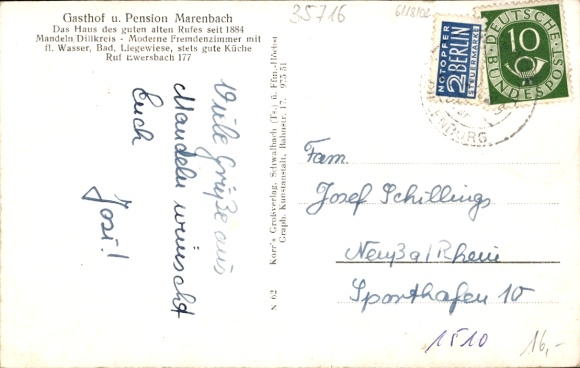 Gasthof u. Pension Marenbach
Das Haus des guten alten Rufes seit 1884
Mandeln Dillkreis - Moderne Fremdenzimmer mit
fl. Wasser, Bad, Liegewiese, stets gute Küche
Ruf Ewersbach 177
Viele Grüße aus
Mandeln wünscht
Euch
Josi!
N 62
Korr's Großverlag, Schwalbach (Ts.) ü. Ffm.-Höchst
Graph. Kunstanstalt, Bahnstr. 17. 975/51
35716
NOTOPFER
2 BERLIN
STEUERMARKE
DEUTSCHE
10
BUNDESPOST
Fam.
Josef Schillings
Neuß a/Rhein
Sporthafen 10
1510
16,-